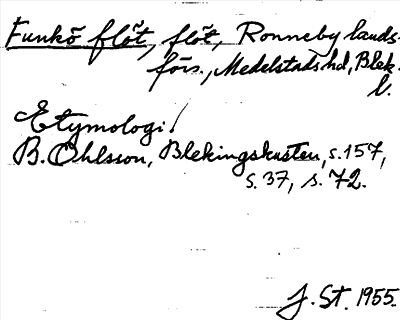 Funkö flöt, flöt, Ronneby lands-
förs., Medelstads hd, Blek.
l.
Etymologi!
B. Ohlsson, Blekingskusten, s. 157,
s. 37, s. 72.
J. St. 1955.